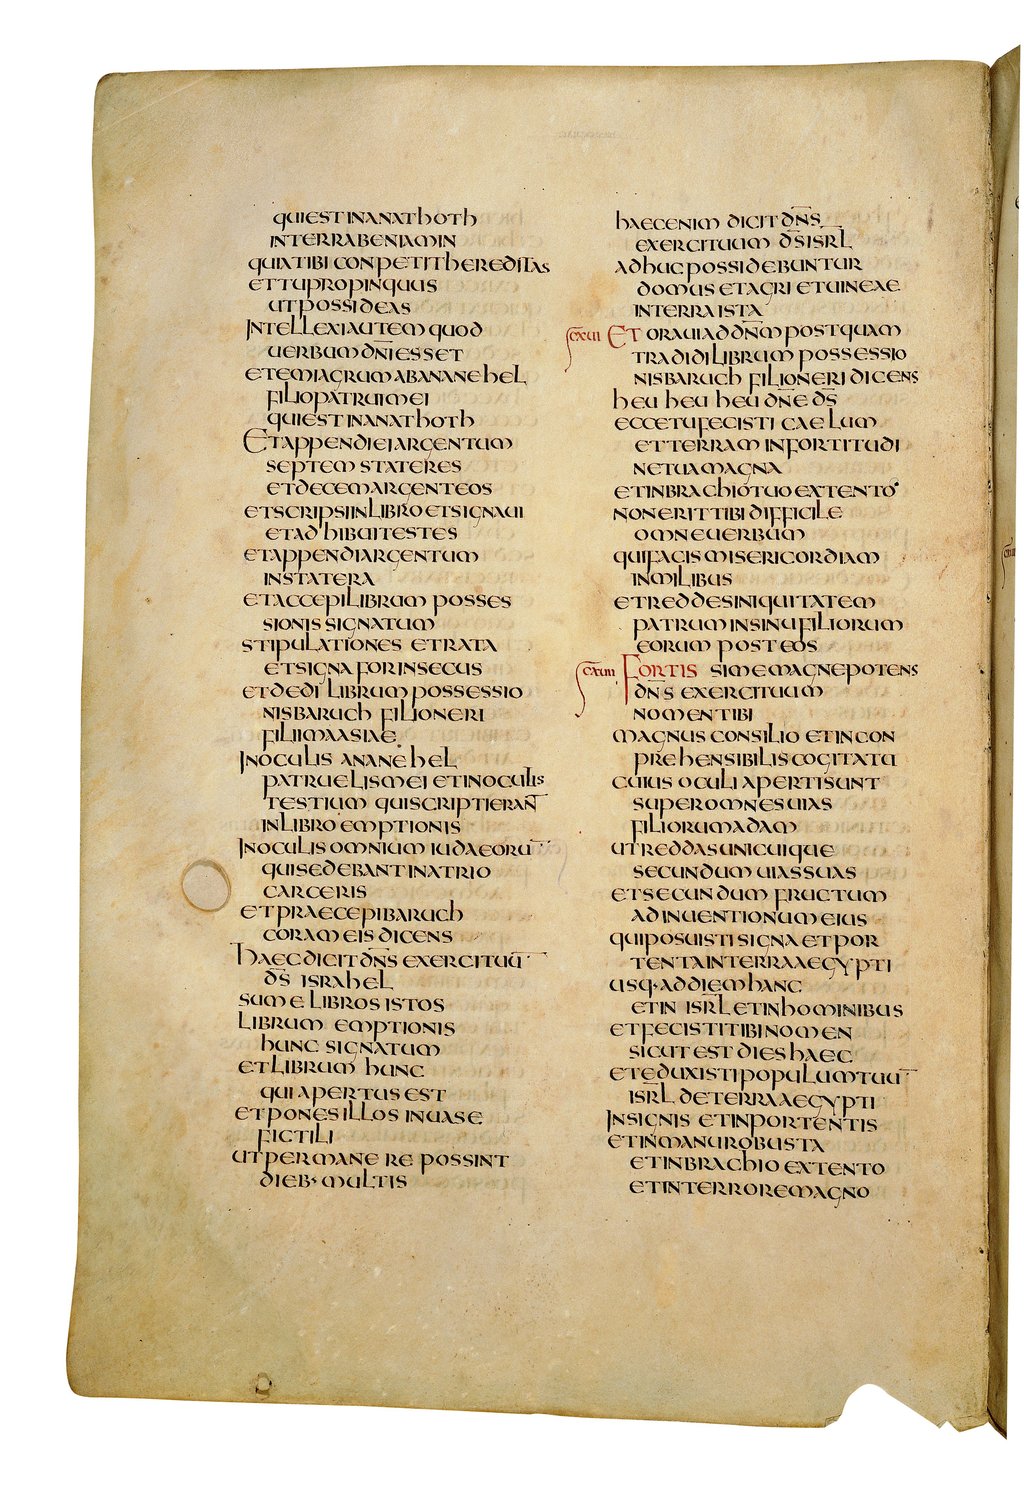 QUIESTINANATHOTH
INTERRABENIAMIN
QUIATIBICONPETITHEREDITAS
ETTUPROPINQUUS
UTPOSSIDEAS
INTELLEXIAUTEM QUOD
UERBUM DN̄IESSET
ETEMIAGRUMABANANEHEL
FILIOPATRUIMEI
QUIESTINANATHOTH
ETAPPENDIEIARGENTUM
SEPTEM STATERES
ETDECEMARGENTEOS
ETSCRIPSIINLIBROETSIGNAUI
ETADHIBUITESTES
ETAPPENDIARGENTUM
INSTATERA
ETACCEPILIBRUM POSSES
SIONIS SIGNATUM
STIPULATIONES ETRATA
ETSIGNA FORINSECUS
ETDEDI LIBRUM POSSESSIO
NISBARUCH FILIONERI
FILIIMAASIAE
INOCULIS ANANEHEL
PATRUELISMEI ETINOCULIS
TESTIUM QUISCRIPTIERAN̄T
INLIBRO EMPTIONIS
INOCULISOMNIUM IUDAEORU̅
QUISEDEBANTINATRIO
CARCERIS
ETPRAECEPIBARUCH
CORAM EIS DICENS
HAECDICITDN̄S EXERCITUU̅
D̄S ISRAHEL
SUME LIBROS ISTOS
LIBRUM EMPTIONIS
HUNC SIGNATUM
ETLIBRUM HUNC
QUI APERTUS EST
ETPONESILLOS INUASE
FICTILI
UTPERMANERE POSSINT
DIEB· MULTIS
HAECENIM DICITDN̄S
EXERCITUUM D̄SISR̄L
ADHUCPOSSIDEBUNTUR
DOMUS ETAGRI ETUINEAE
INTERRAISTA
CXUII ET ORAUIADDN̄MPOSTQUAM
TRADIDILIBRUM POSSESSIO
NISBARUCH FILIONERIDICENS
HEU HEU HEU DN̄E D̄S
ECCETUFECISTI CAELUM
ETTERRAM INFORTITUDI
NETUAMAGNA
ETINBRACHIOTUOEXTENTO
NONERITTIBIDIFFICILE
OMNEUERBUM
QUIFACISMISERICORDIAM
INMILIBUS
ETREDDESINIQUITATEM
PATRUMINSINUFILIORUM
EORUM POSTEOS
CXUIII FORTIS SIMEMAGNEPOTENS
DN̄S EXERCITUUM
NOMENTIBI
MAGNUS CONSILIO ETINCON
PREHENSIBILISCOGITATU
CUIUS OCULI APERTISUNT
SUPEROMNESUIAS
FILIORUMADAM
UTREDDASUNICUIQUE
SECUNDUM UIASSUAS
ETSECUNDUM FRUCTUM
ADINUENTIONUMEIUS
QUIPOSUISTISIGNAETPOR
TENTAINTERRAAEGYPTI
USQ·ADDIEMHANC
ETIN ISR̄LETINHOMINIBUS
ETFECISTITIBINOMEN
SICUTEST DIESHAEC
ETEDUXISTIPOPULUMTUU̅
ISR̄L DETERRAAEGYPTI
INSIGNIS ETINPORTENTIS
ETINMANUROBUSTA
ETINBRACHIO EXTENTO
ETINTERROREMAGNO